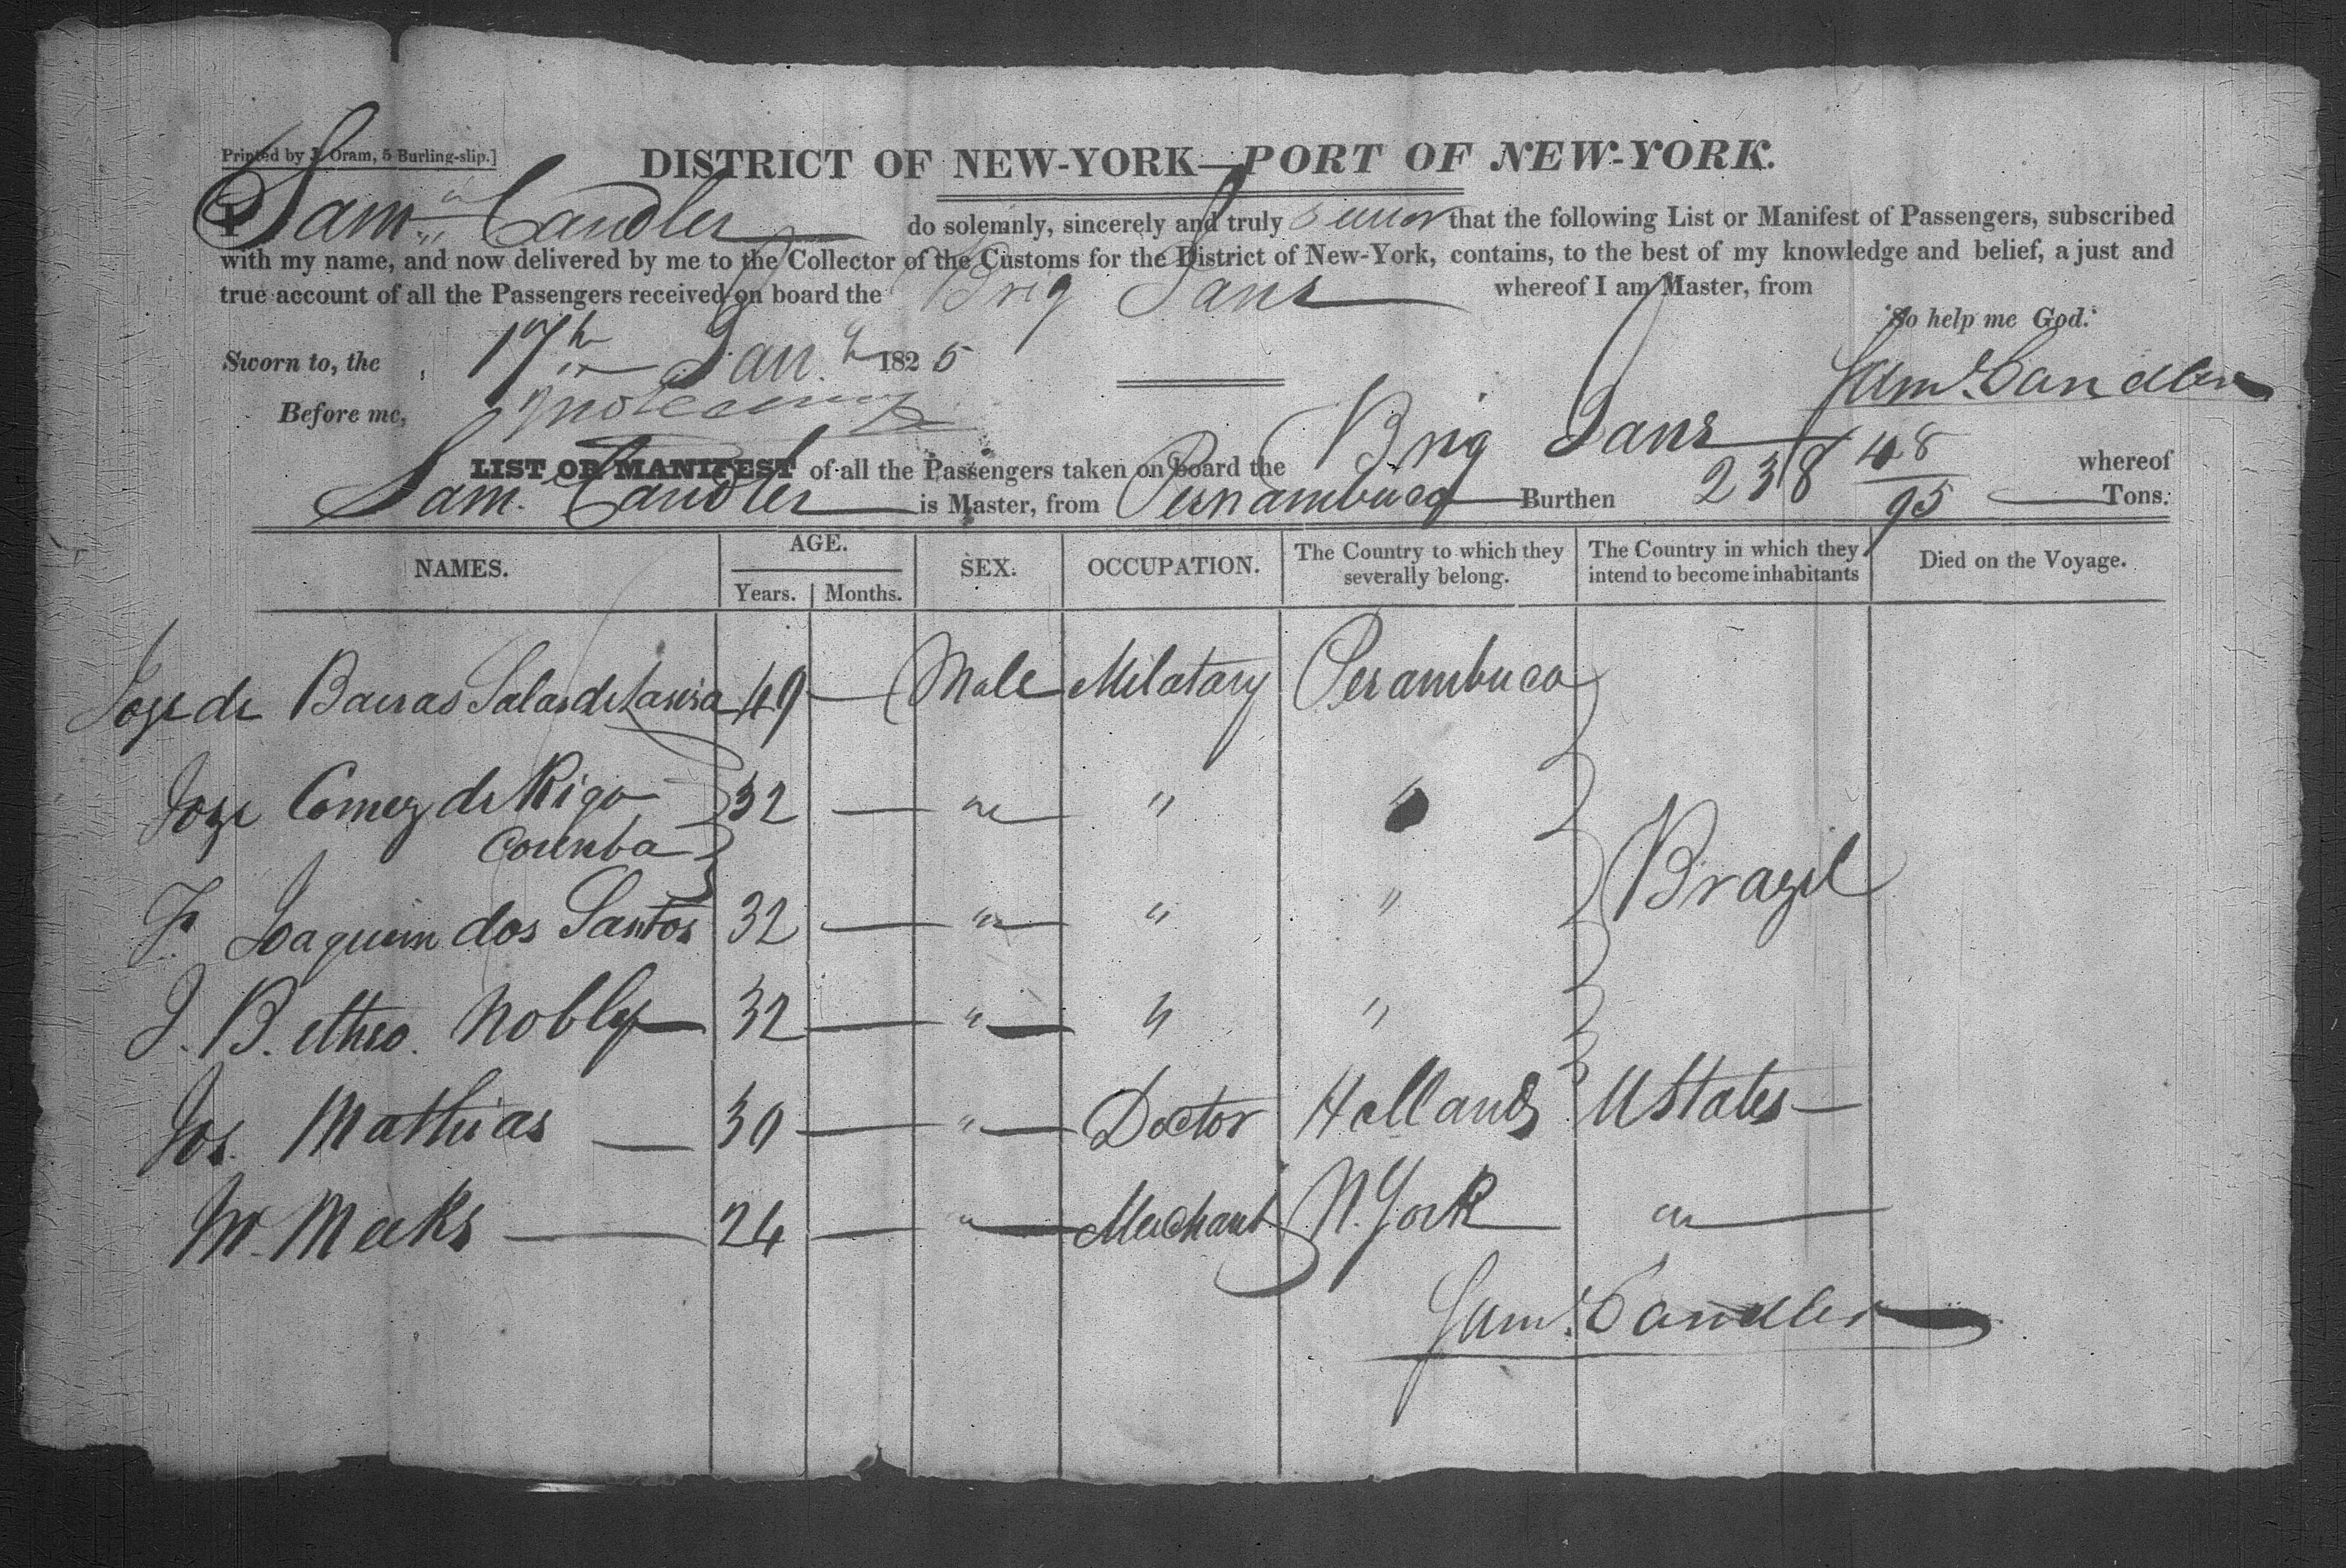 Printed by J. Oram, 5 Burling-slip.]
DISTRICT OF NEW-YORK—PORT OF NEW-YORK.
I Saml Candler do solemnly, sincerely and truly swear that the following List or Manifest of Passengers, subscribed
with my name, and now delivered by me to the Collector of the Customs for the District of New-York, contains, to the best of my knowledge and belief, a just and
true account of all the Passengers received on board the Brig Jane whereof I am Master, from
So help me God.
Sworn to, the 17th Jany 1825
Saml. Candler
Before me,
LIST OR MANIFEST of all the Passengers taken on board the Brig Jane whereof
Sam. Candler is Master, from Pernambuco Burthen 238 48/95 Tons.
NAMES. AGE. SEX. OCCUPATION. The Country to which they severally belong. The Country in which they intend to become inhabitants Died on the Voyage.
Years. Months.
Joze de 49 — Male Milatary Perambuco
Joze Gomez de Rigo 32 — " " "
Coimba
F. Joaquim dos Santos 32 — " " " Brazil
J. B. Nobly 32 — " " "
Jos. Mathias — 30 — " — Doctor Holland UStates —
M. Meeks — 24 — " — Merchant N. York " —
Saml. Candler